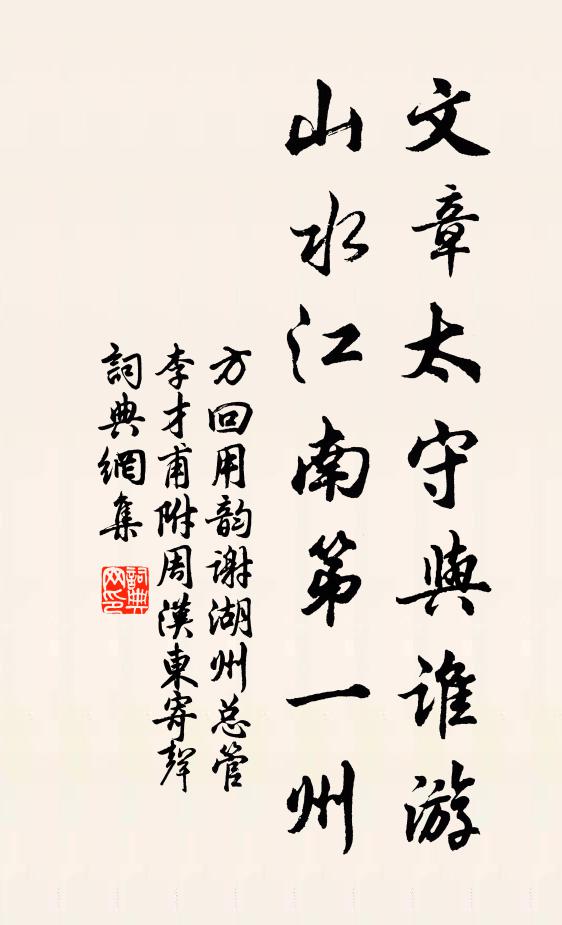 文章太守與誰游
山水江南第一州
方回用韵谢湖州总管
李才甫附周漢東寄聲
詞典網集
詞典
网印